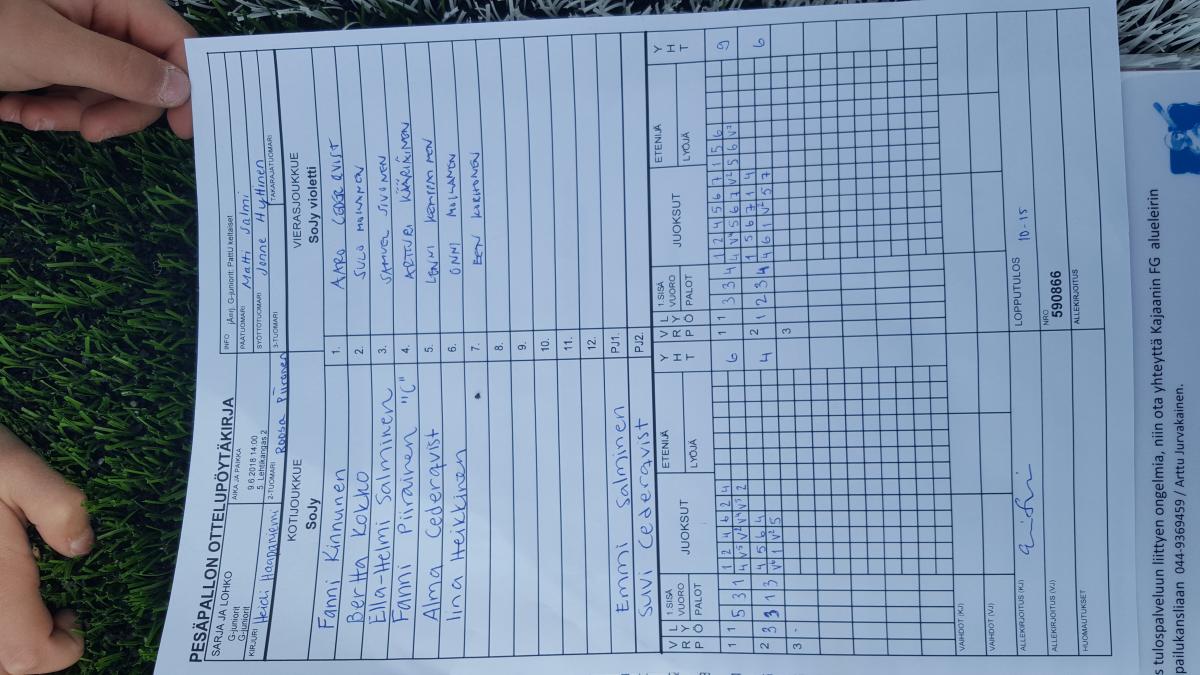 PESÄPALLON OTTELUPÖYTÄKIRJA
SARJA JA LOHKO
G-juniorit
G-juniorit
AIKA JA PAIKKA
9.6.2018 14:00
5. Lehtikangas 2
INFO
G-juniorit: Pattu keltaiset
PÄÄTUOMARI
Matti Salmi
KIRJURI
Heidi Haapaniemi
2-TUOMARI
Roosa Piiranen
SYÖTTÖTUOMARI
Jonne Hyttinen
3-TUOMARI
TAKARAJATUOMARI
KOTIJOUKKUE
SoJy
VIERASJOUKKUE
SoJy violetti
Fanni Kinnunen 1. AARO CEDERQVIST
Bertta Kokko 2. SULO MOILANEN
Ella-Helmi Salminen 3. SAMUEL SIVONEN
Fanni Piirainen "C" 4. ARTTURI KÄÄRIÄINEN
Alma Cederqvist 5. LENNI KEMPPAINEN
Iina Heikkinen 6. ONNI MOILANEN
7. EEN KORHONEN
8.
9.
10.
11.
12.
Emmi Salminen PJ1.
Suvi Cederqvist PJ2.
V R P L Y Ö 1.SISÄ VUORO PALOT JUOKSUT ETENIJÄ LYÖJÄ Y H T
V R P L Y Ö 1.SISÄ VUORO PALOT JUOKSUT ETENIJÄ LYÖJÄ Y H T
1 1 5 3 1 1 2 4 6 2 4 6
1 1 3 3 4 1 2 4 5 6 7 1 5 6 9
2 3 3 1 3 4 5 6 4 4
2 1 2 3 4 1 5 6 7 1 4 6
3
3
VAIHDOT (KJ)
VAIHDOT (VJ)
ALLEKIRJOITUS (KJ)
LOPPUTULOS 10-15
ALLEKIRJOITUS (VJ)
NRO
590866
HUOMAUTUKSET
ALLEKIRJOITUS
s tulospalveluun liittyen ongelmia, niin ota yhteyttä Kajaanin FG alueleirin
pailukansliaan 044-9369459 / Arttu Jurvakainen.